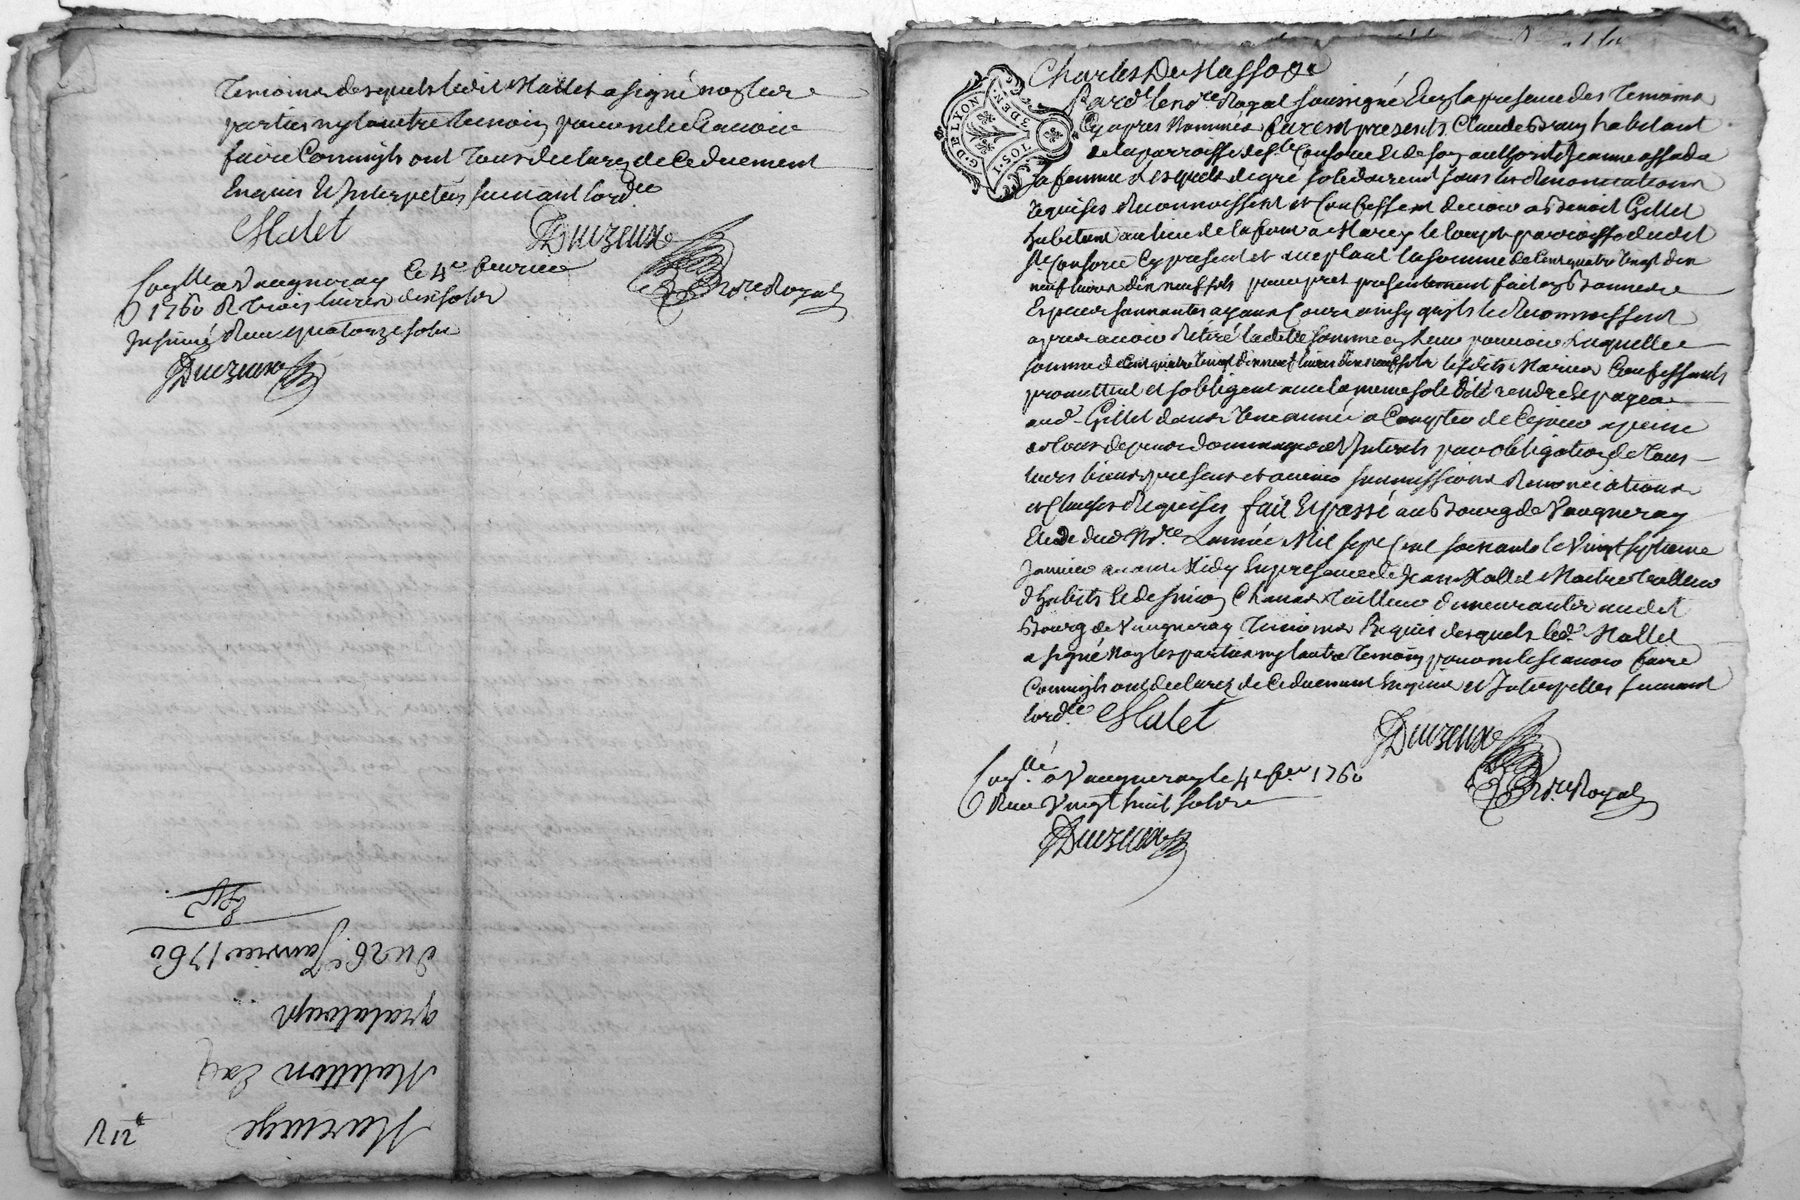 Temoins desquels ledit Mallet a signé non les
parties ny l'autre temoin pour ne le scavoir
faire Comm'ils ont tous declarez de Ce duement
Enquis et Interpelés suivant lord.ce
Malet Duvzeux
No.re Royal
Con.llé a Vaugneray le 4e fevrier
1760 R trois livres dix sols
Insinué Reçu quatorze sols
G.DELYON
TOS.I
3.DEN.
Charles De Massos
Pard.t le no.re Royal soussigné Et en la presence des Temoins
Cy apres Nommés furent presents Claude habitant
de la parroisse de S.te Consorce Et de son authorité Jeanne
sa femme Lesquels de gré solidairement sous les Renonciations
requises Reconnoissent et Confessent devoir a Benoit Gillet
habitant au lieu de parroisse dudit
S.te Consorce Cy present et acceptant la somme de Cent quatre vingt dix
neuf livres dix neuf sols pour pret presentement fait en bonnes
Especes sonnantes ayant Cours ainsy qu'ils le Reconnoissent
apres avoir Retiré ladette somme Laquelle
somme de Cent quatre vingt dix neuf livres dix neuf sols lesdits Mariés Confessants
promettent et s'obligent avec la meme solidité rendre Et payer
aud. Gillet dans Une année a Compter de Ce jour a peine
de tous depens dommages et Interets par obligation de Tous
leurs biens presents et avenir soumissions Renonciations
et Clauses Requises fait Et passé au Bourg de Vaugneray
Etude dud No.re L'année Mil sept Cent soixante le Vingt septieme
Janvier avant Midy En presence de Jean Mallet Maitre tailleur
d'habits Et de Tailleur demeurants audit
Bourg de Vaugneray Temoins Requis desquels led. Mallet
a signé Non les parties ny l'autre Temoin pour ne le scavoir faire
Comm'ils ont declarez de Ce duement Enquis et Interpellés suivant
lord.ce Malet Duvzeux
No.re Royal
Con.llé a Vaugneray le 4e fev.er 1760
Reçu Vingt huit sols
Mariage
Matillon Et
grataloup
du 26e Janvier 1760
Exp.é
R 12